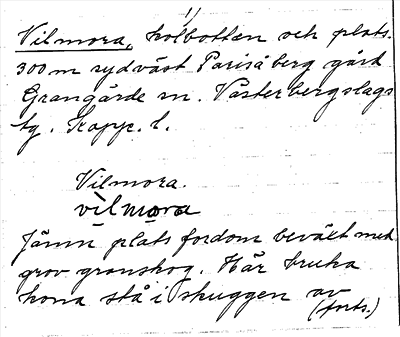 Vilmora, kolbotten och plats.
300 m sydväst Parisåberg gård
Grangärde sn. Västerbergslags
tg. Kopp. l.
Vilmora.
vìlmo̱ra
Jämn plats fordom beväxt med
grov granskog. Här bruka
korna stå i skuggen av
(forts.)